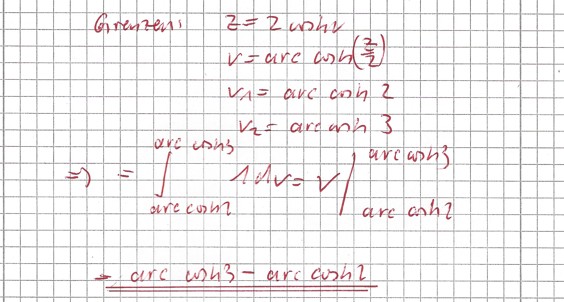 Grenzen: z = 2 cosh v
v = arc cosh(z/2)
v1 = arc cosh 2
v2 = arc cosh 3
=> = ∫_{arc cosh2}^{arc cosh3} 1 dv = v |_{arc cosh2}^{arc cosh3}
= arc cosh3 - arc cosh2